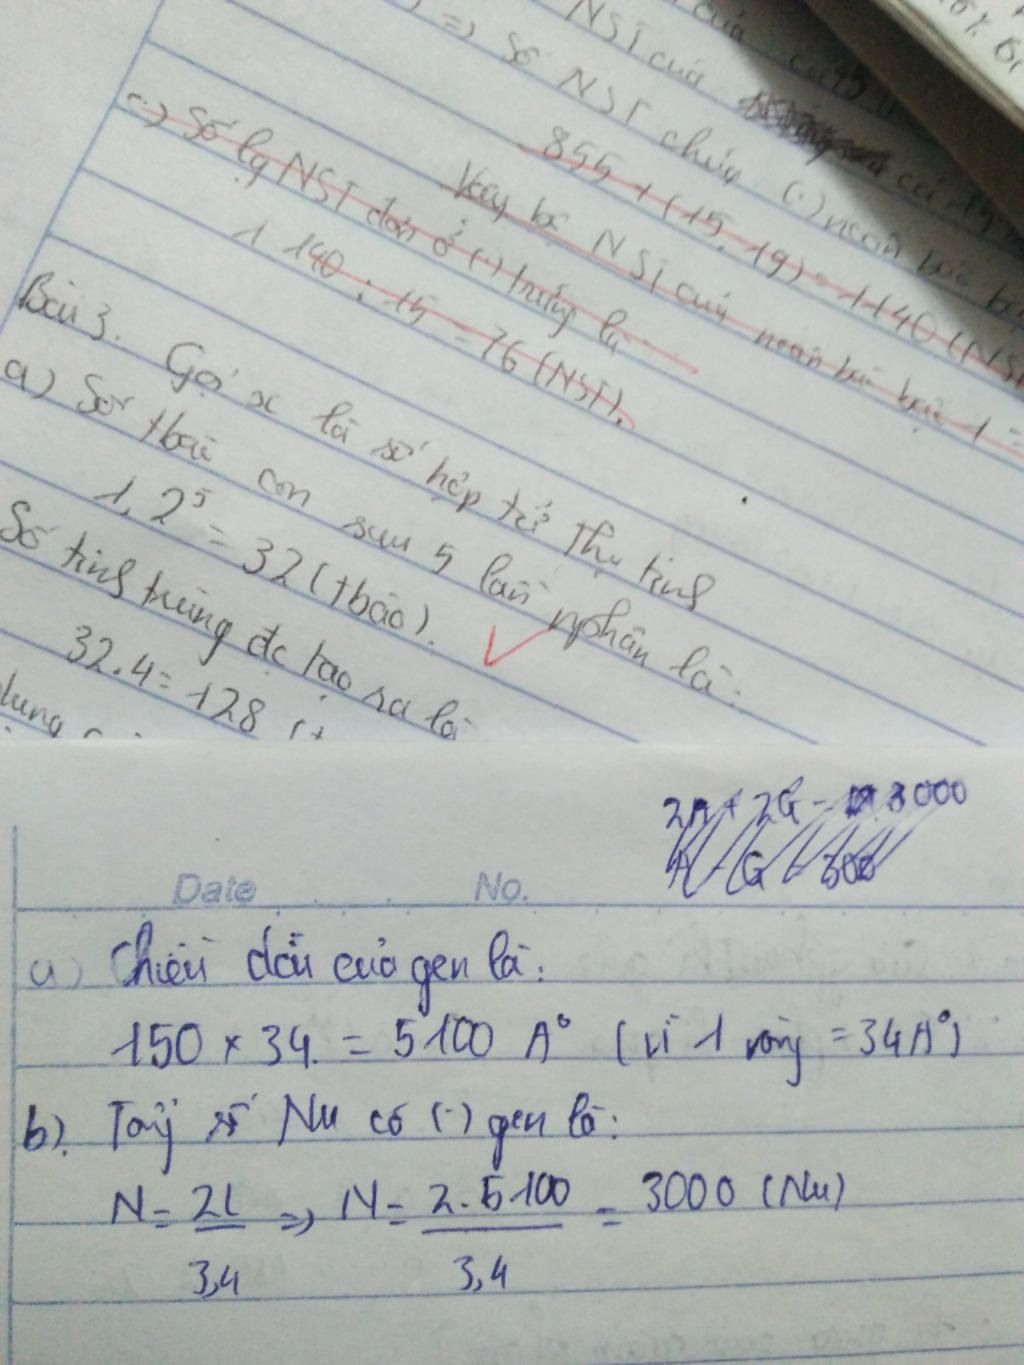 NST của
=> Số NST chứa (.) noãn bào bậc
855 + (15.19) = 1140 (NST
Vậy bộ NST của noãn bào bậc 1 =
c) Số lg NST đơn ở (.) trứng là
1 140 : 15 = 76 (NST).
Bài 3. Gọi x là số hợp tử thụ tinh
a) Số tbào con sau 5 lần nphân là:
1, 2⁵ = 32 (tbào).
Số tinh trùng đc tạo ra là
32.4 = 128 (t
2A + 2G = 3000
A G 300
Date No.
a) Chiều dài của gen là:
150 × 34. = 5100 A° (vì 1 vòng = 34A°)
b). Tổng số Nu có (.) gen là:
N = 2L => N = 2.5100 = 3000 (Nu)
3,4 3,4